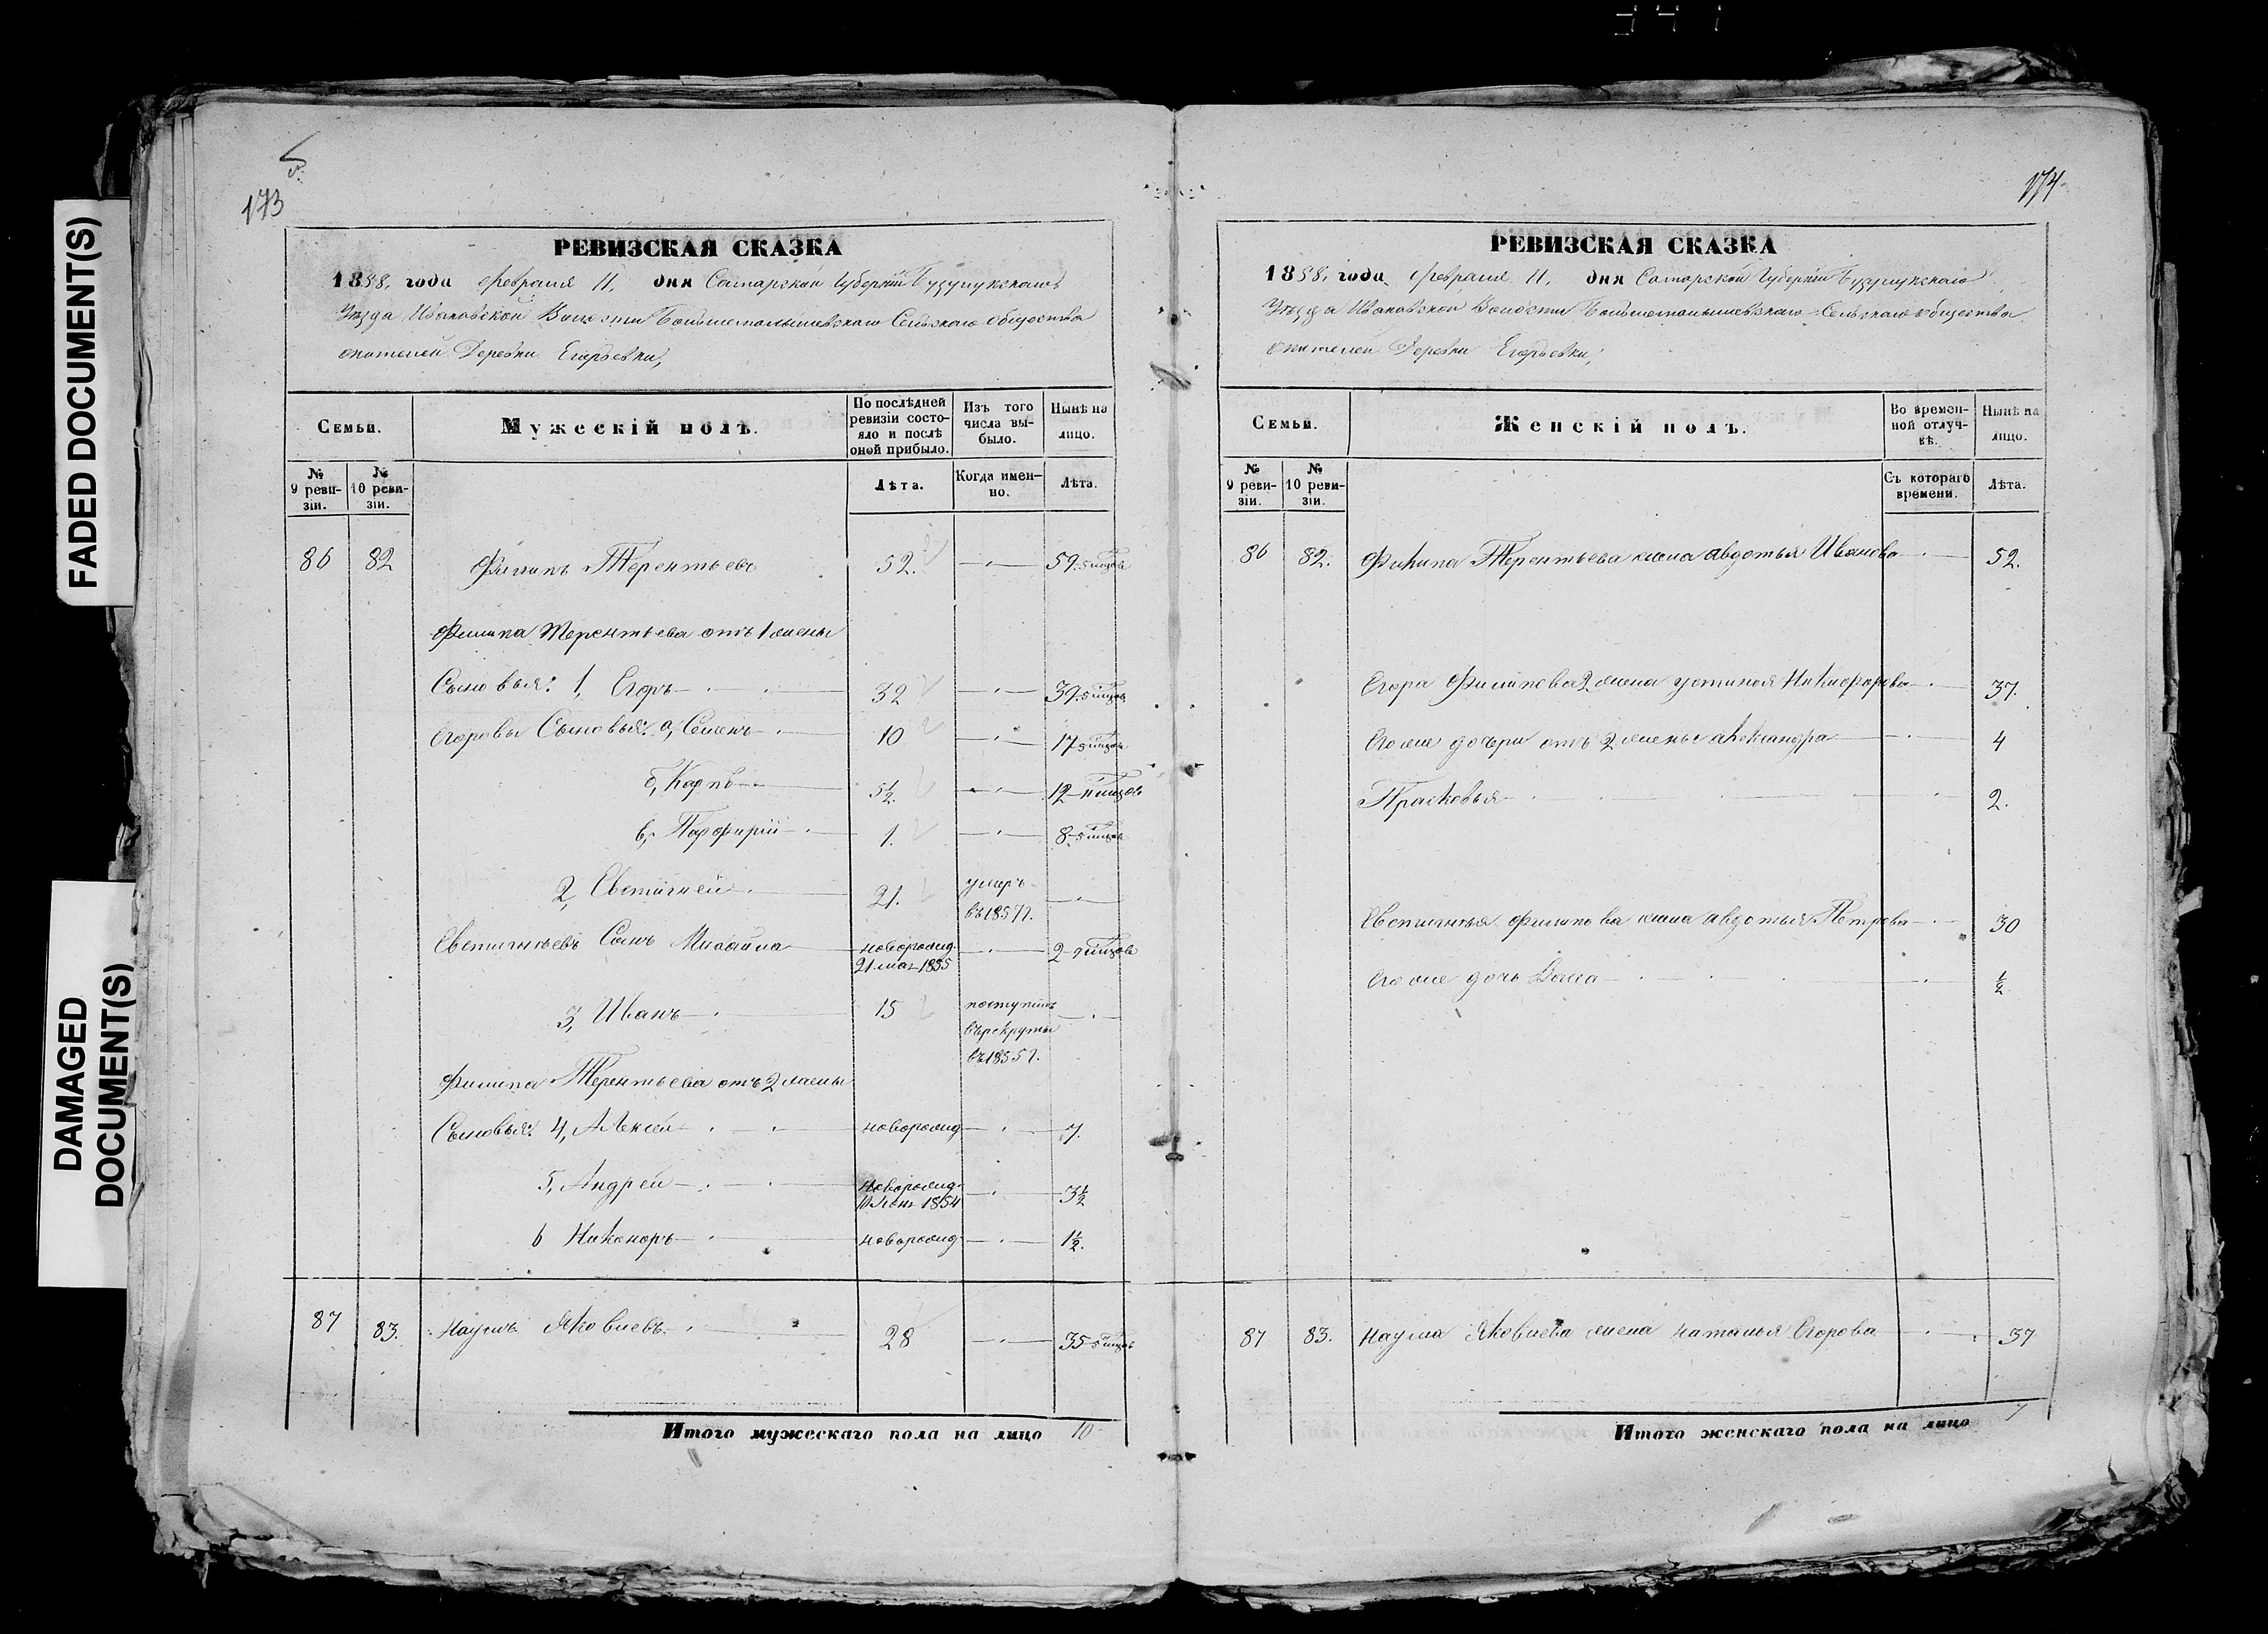 FADED DOCUMENT(S)
DAMAGED
DOCUMENT(S)
173
РЕВИЗСКАЯ СКАЗКА
1858. года февраля 11. дня Самарской Губерніи Бузулукскаго
Уѣзда Ивановской Волости Большемалышевскаго Сельскаго общества
жителей Деревни Егорьевки,
Семьи.
Мужескій полъ.
По послѣдней
ревизіи состо-
яло и послѣ
оной прибыло.
Изъ того
числа вы-
было.
Нынѣ на
лицо.
№
9 реви-
зіи.
№
10 реви-
зіи.
Лѣта.
Когда имен-
но.
Лѣта.
86 82 Филипъ Терентьевъ 52. 59
Филипа Терентьева отъ 1 жены
Сыновья: 1, Егоръ 32 39
Егоровы Сыновья: а, Семенъ 10 17
б, Карпъ 5½. 12
в, Парфирій 1. 8
2, Евстигней 21. умеръ
въ 1857 г.
Евстигнѣевъ Сынъ Михайла новорожд. 2
21 мая 1855
3, Иванъ 15 поступилъ
въ рекруты
въ 1855 г.
Филипа Терентьева отъ 2 жены
Сыновья: 4, Алексѣй новорожд 7.
5, Андрей новорожд 3½
1854
6 Никоноръ новорожд 1½.
87 83. Наумъ Яковлевъ 28 35
Итого мужескаго пола на лицо 10
174
РЕВИЗСКАЯ СКАЗКА
1858. года февраля 11. дня Самарской Губерніи Бузулукскаго
Уѣзда Ивановской Волости Большемалышевскаго Сельскаго общества
жителей Деревни Егорьевки;
Семьи.
Женскій полъ.
Во времен-
ной отлуч-
кѣ.
Нынѣ на
лицо.
№
9 реви-
зіи.
№
10 реви-
зіи.
Съ котораго
времени.
Лѣта.
86 82. Филипа Терентьева жена Авдотья Иванова 52.
Егора Филипова 2 жена Устинья Никифорова 37.
Его же дочери отъ 2 жены Александра 4
Прасковья 2.
Евстигнѣя Филипова жена Авдотья Петрова 30
Его же дочь Васса ½
87 83. Наума Яковлева жена Наталья Егорова 37
Итого женскаго пола на лицо 7